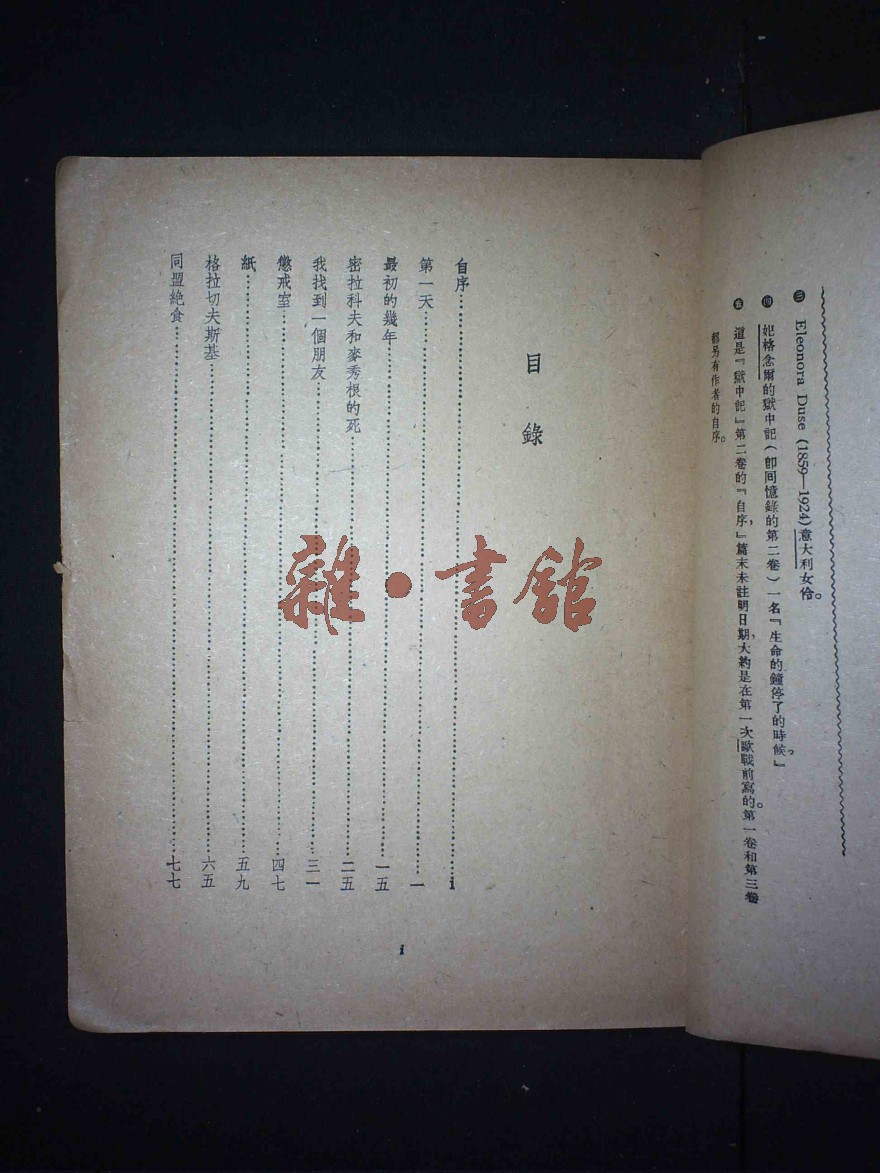 ㊂ Eleonora Duse (1859—1924)意大利女伶。
㊃ 妃格念爾的獄中記(卽回憶錄的第二卷)一名『生命的鐘停了的時候。』
㊄ 這是『獄中記』第二卷的『自序,』篇末未註明日期,大約是在第一次歐戰前寫的。第一卷和第三卷
都另有作者的自序。
目錄
自序……i
第一天……一
最初的幾年……一五
密拉科夫和麥秀根的死……二五
我找到一個朋友……三一
懲戒室……四七
紙……五九
格拉切夫斯基……六五
同盟絕食……七七
i
雜·書館